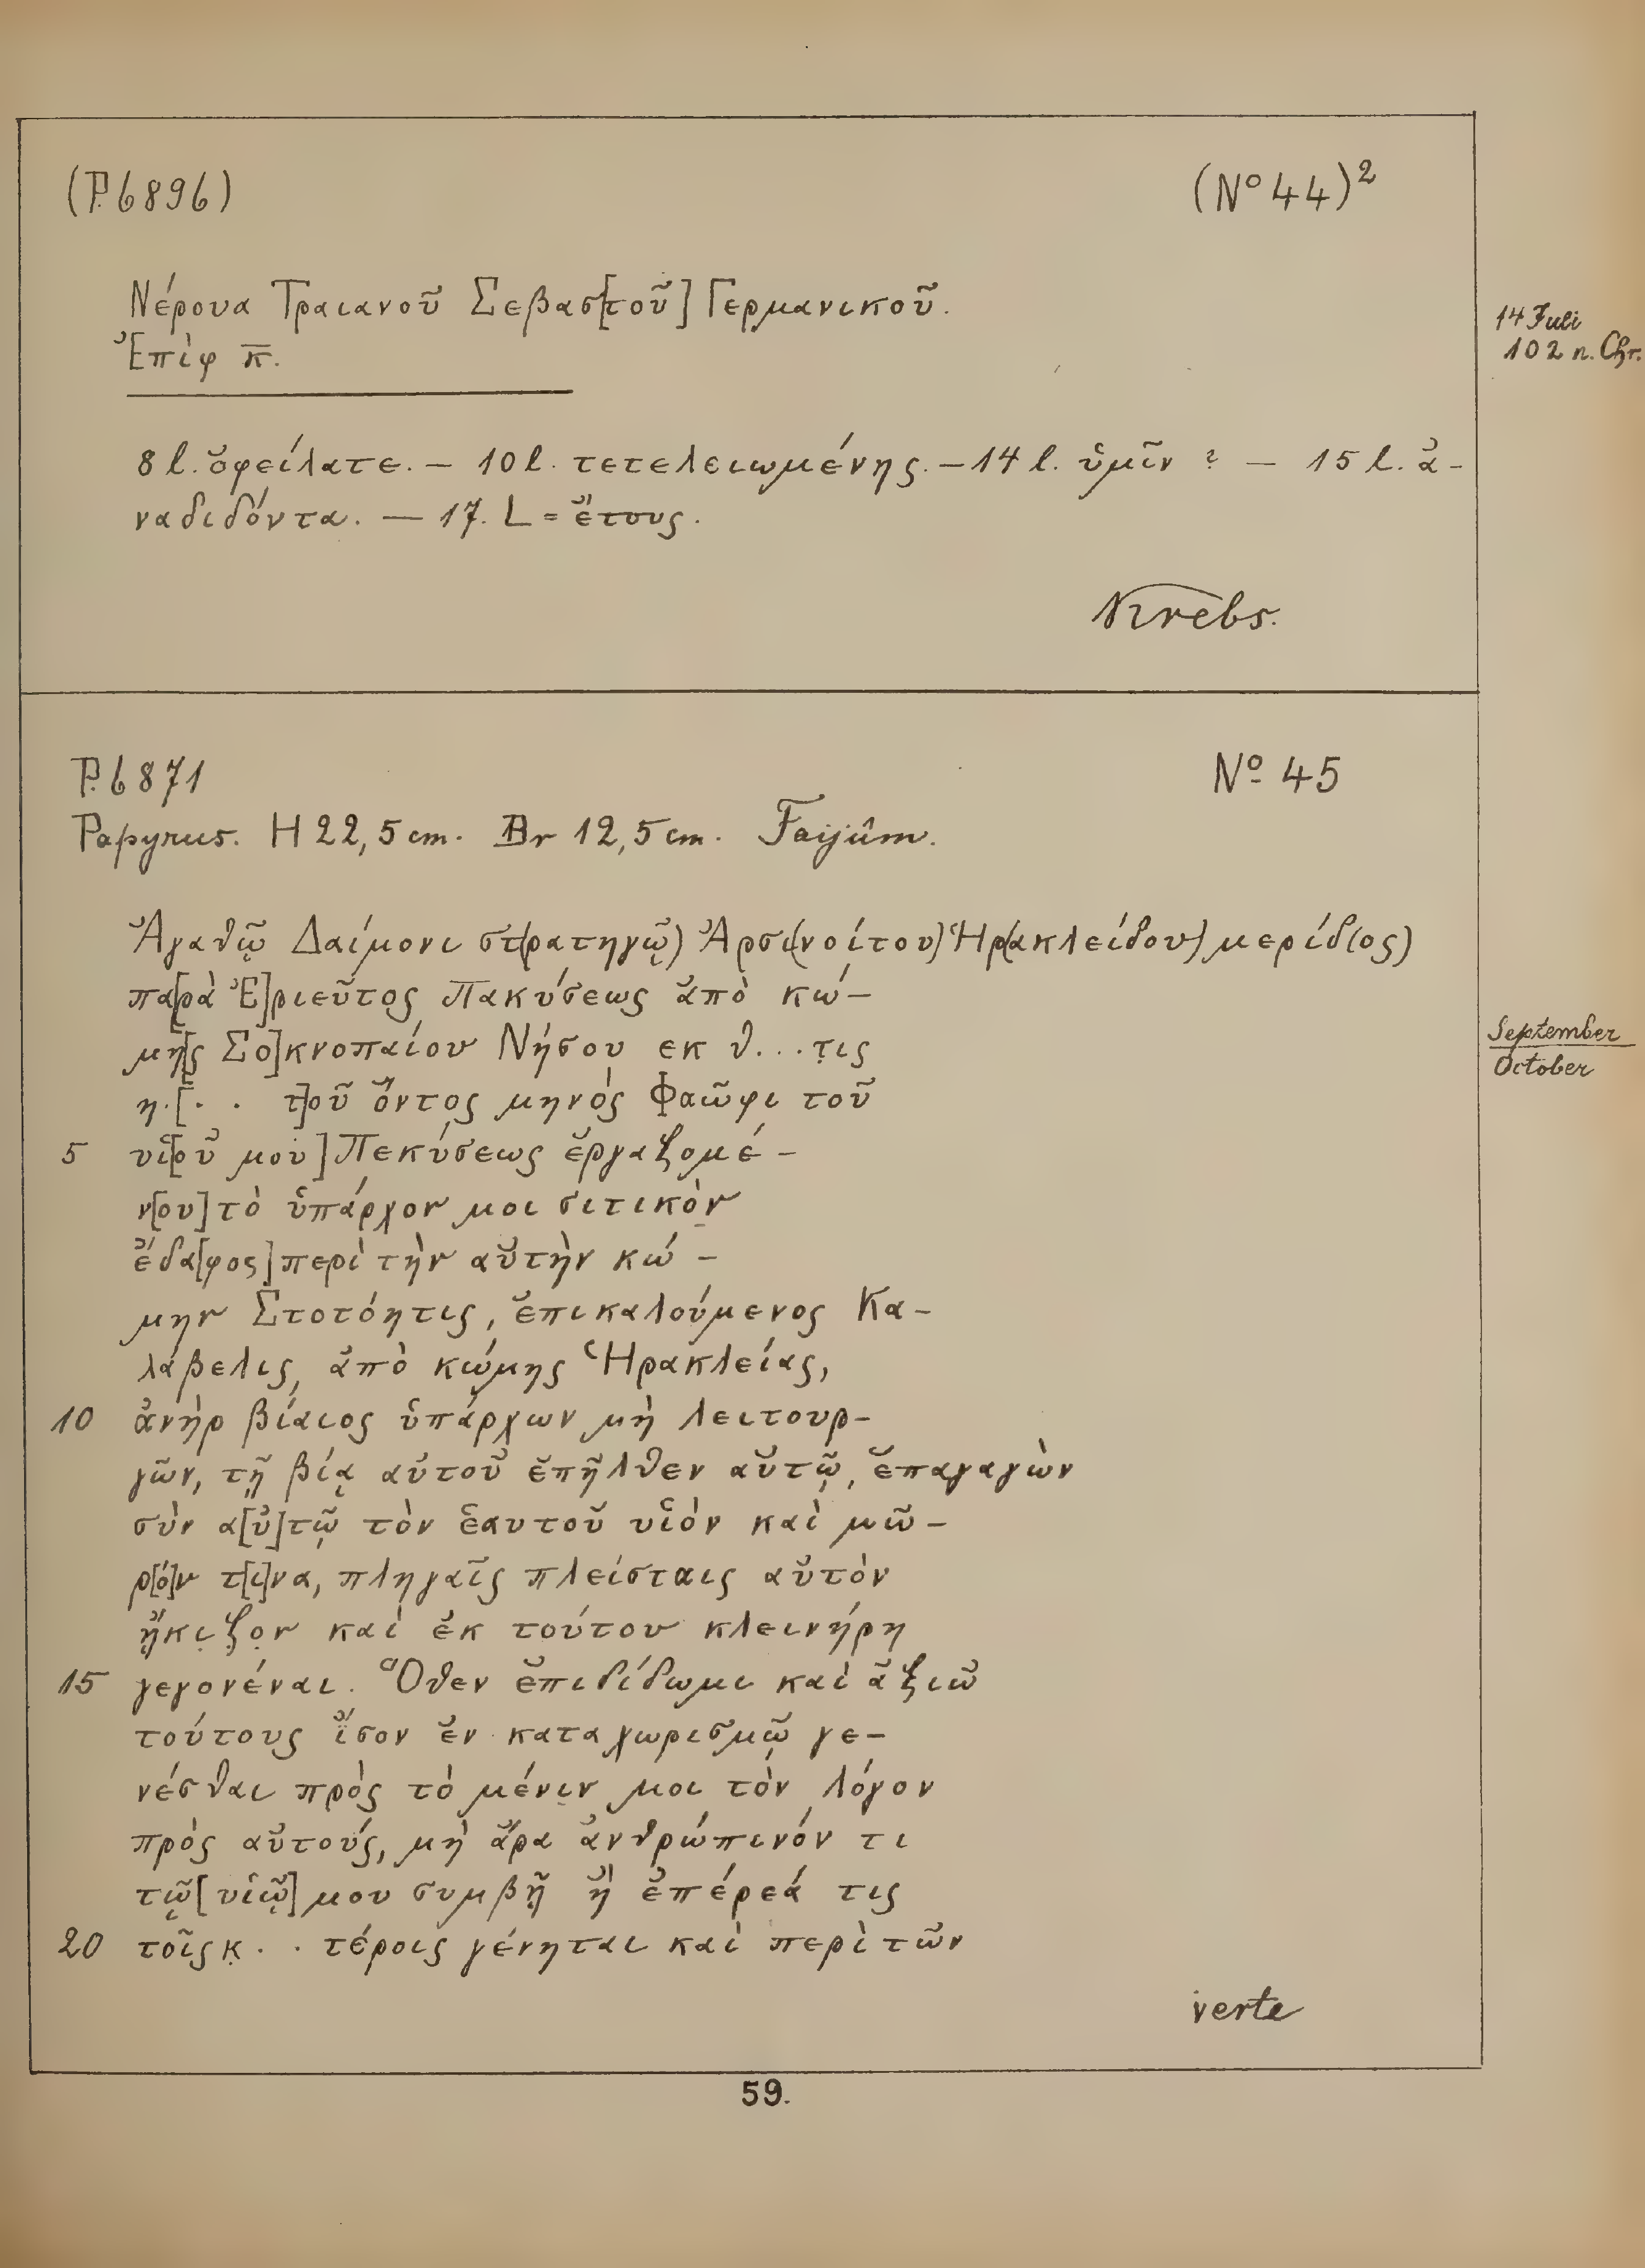 (P. 6896) (No 44)²
Νέρουα Τραιανοῦ Σεβασ[τοῦ] Γερμανικοῦ.
Ἐπὶφ κ̅.
14 Juli
102 n. Chr.
8 l. ὀφείλατε. — 10 l. τετελειωμένης. — 14 l. ὑμῖν ? — 15 l. ἀ-
ναδιδόντα. — 17. L = ἔτους.
Krebs.
P. 6871 No 45
Papyrus. H 22,5 cm. Br 12,5 cm. Faijûm.
Ἀγαθῷ Δαίμονι στ(ρατηγῷ) Ἀρσι(νοίτου) Ἡρ(ακλείδου) μερίδ(ος)
πα[ρὰ Ἑ]ριεῦτος Πακύσεως ἀπὸ κώ-
μη[ς Σο]κνοπαίου Νήσου εκ θ...τις
η.[. . τ]οῦ ὄντος μηνὸς Φαῶφι τοῦ
September
October
5 υἱ[οῦ μου] Πεκύσεως ἐργαζομέ-
ν[ου] τὸ ὑπάρχον μοι σιτικὸν
ἔδα[φος] περὶ τὴν αὐτὴν κώ-
μην Στοτόητις, ἐπικαλούμενος Κα-
λάβελις, ἀπὸ κώμης Ἡρακλείας,
10 ἀνὴρ βίαιος ὑπάρχων μὴ λειτουρ-
γῶν, τῇ βίᾳ αὐτοῦ ἐπῆλθεν αὐτῷ, ἐπαγαγὼν
σὺν α[ὐ]τῷ τὸν ἑαυτοῦ υἱὸν καὶ μω̃-
ρ[ό]ν τ[ι]να, πληγαῖς πλείσταις αὐτὸν
ᾔκιζον καὶ ἐκ τούτου κλεινήρη
15 γεγονέναι. Ὅθεν ἐπιδίδωμι καὶ ἀξιῶ
τούτους ἴ̈σον ἐν καταχωρισμῷ γε-
νέσθαι πρὸς τὸ μένιν μοι τὸν λόγον
πρὸς αὐτούς, μὴ ἄρα ἀνθρώπινόν τι
τῷ [υἱῷ] μου συμβῇ ἢ ἐπέρεά τις
20 τοῖς κ̣. . τέροις γένηται καὶ περὶ τῶν
verte
59.